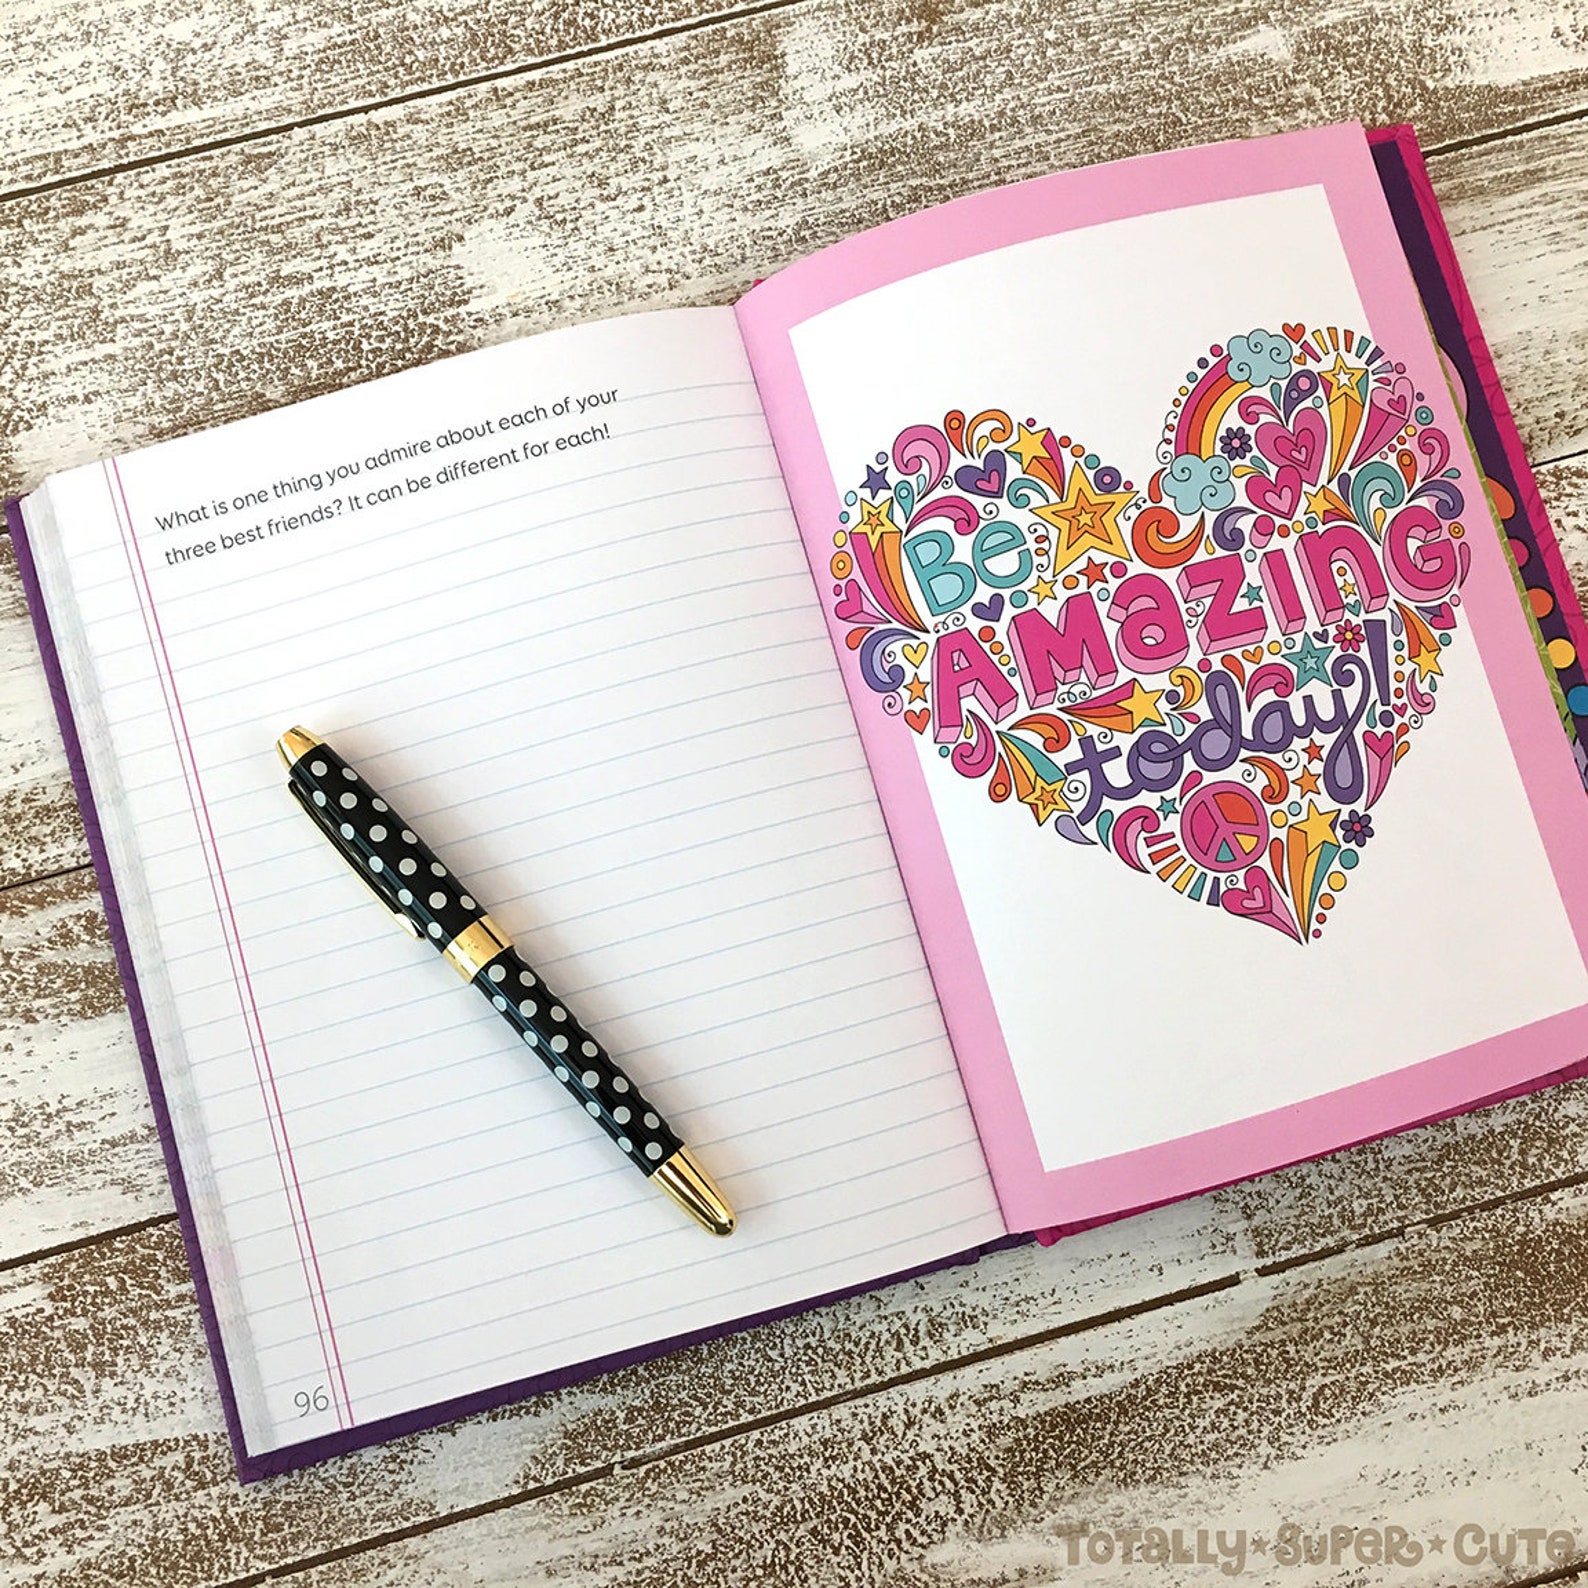 What is one thing you admire about each of your
three best friends? It can be different for each!
96
Be
AMaZING
today!
TOTALLY★SUPER★CUTE™